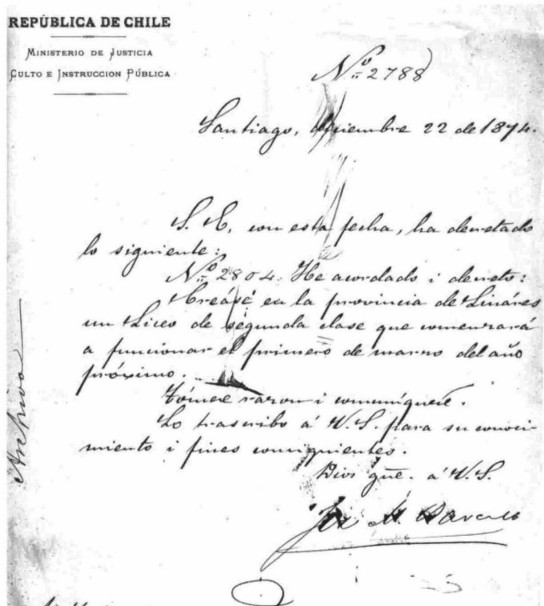 REPÚBLICA DE CHILE
MINISTERIO DE JUSTICIA
CULTO E INSTRUCCION PÚBLICA
Nº 2788
Santiago, diciembre 22 de 1874.
S. E, con esta fecha, ha decretado
lo siguiente:
Nº 2804. He acordado i decreto:
Créase en la provincia de Linares
un Liceo de segunda clase que comenzará
a funcionar el primero de marzo del año
próximo.
Tómese razon i comuníquese.
Lo trascribo á V.S. para su conoci-
miento i fines consiguientes.
Dios gue. á V.S.
Archivo